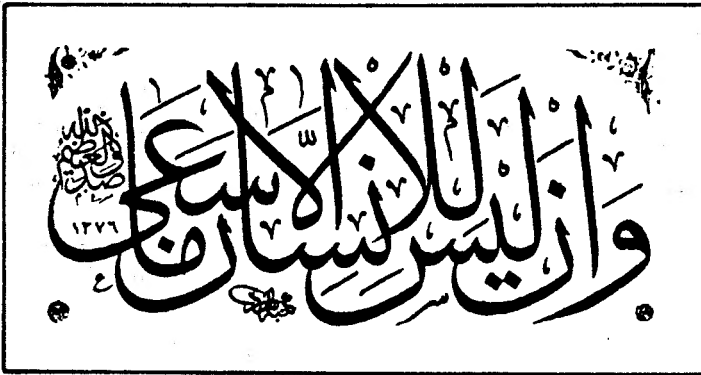 وان ليس للانسان الا ما سعى
صدق الله العظيم
١٣٧٦